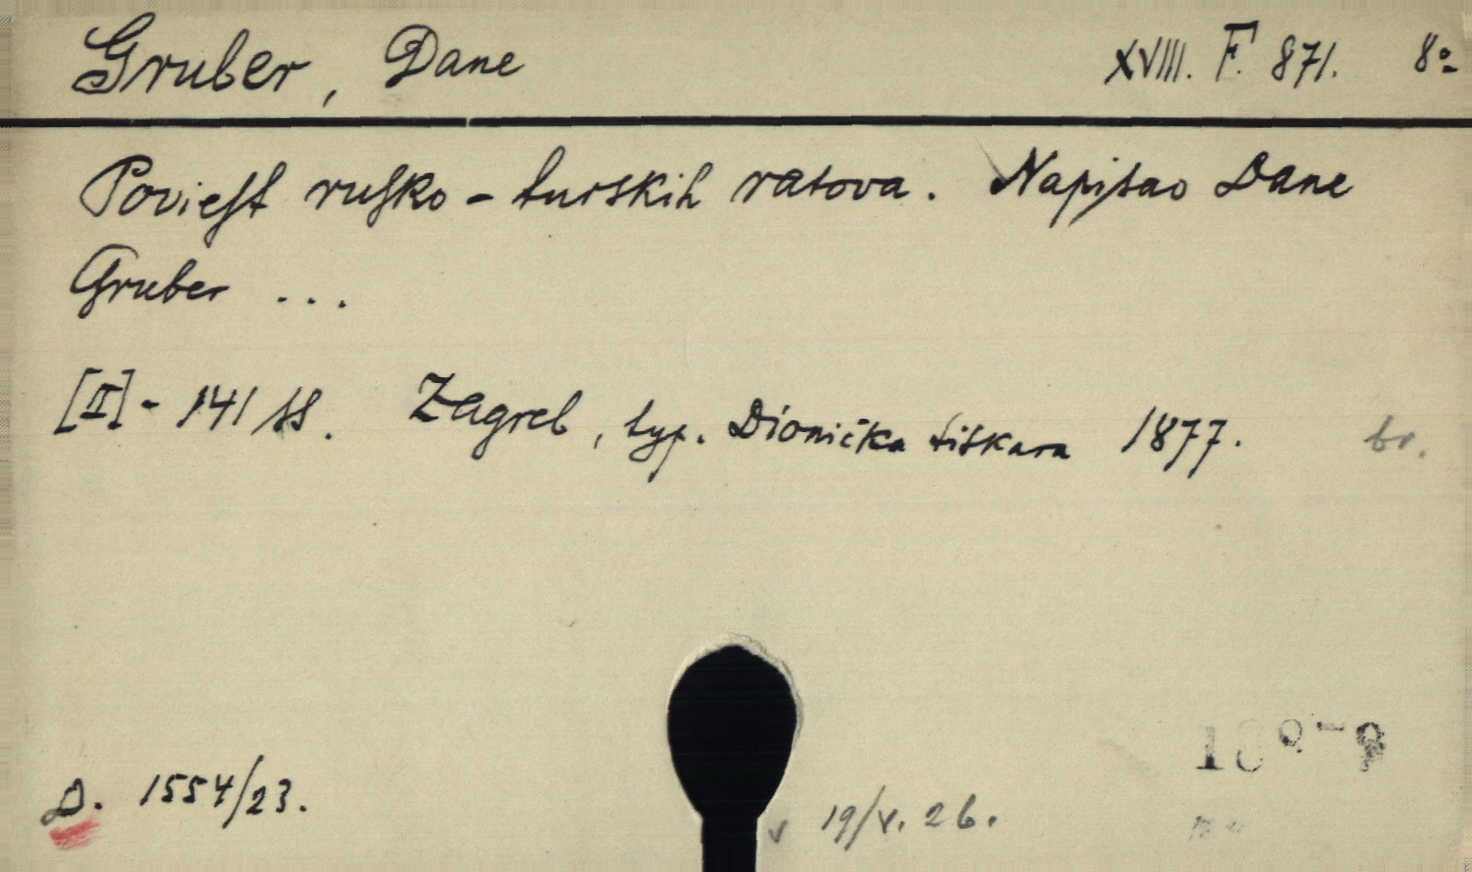 Gruber, Dane XVIII. F. 871. 8º
Povieſt ruſko - turskih ratova. Napisao Dane
Gruber ...
[II] - 141 SS. Zagreb, typ. Dionička tiskara 1877. br.
D. 1554/23.
v 19/V. 26.